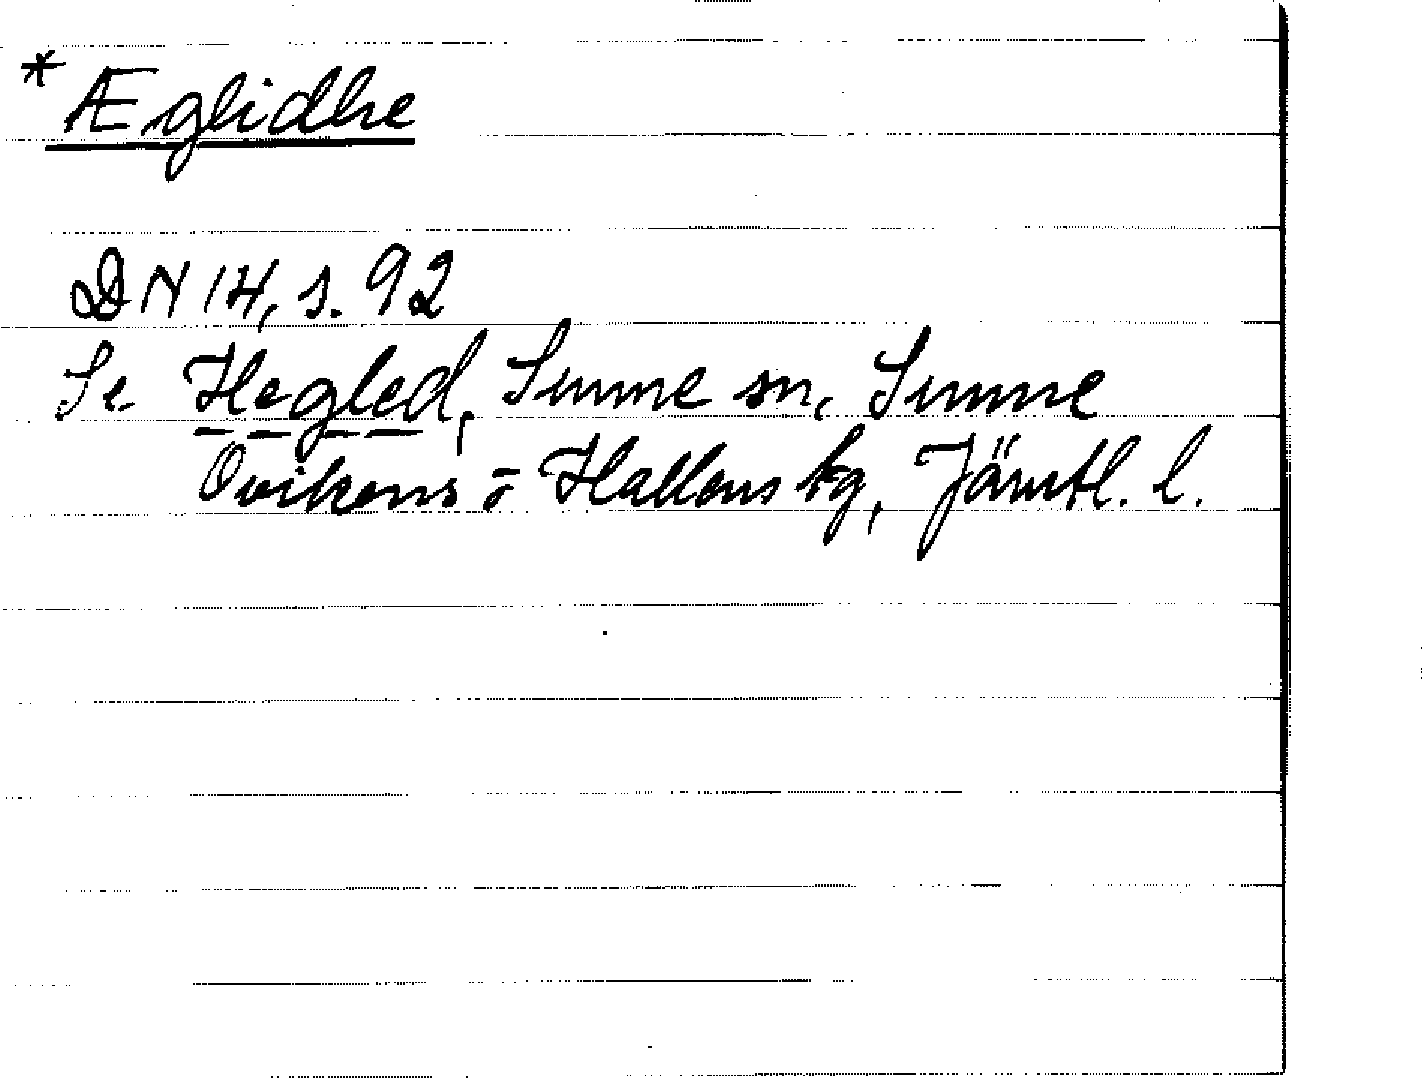 * Æglidhe
DN 14, s. 92
Se Hegled, Sunne sn, Sunne
Ovikens o Hallens tg, Jämtl. l.